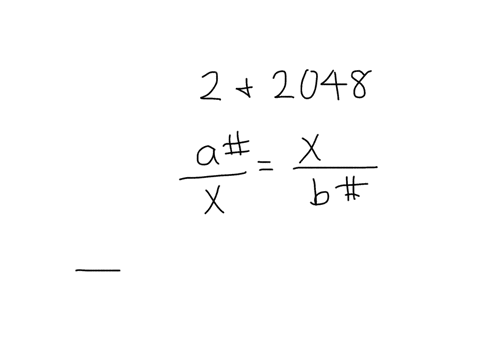 2 + 2048
a# / x = x / b#